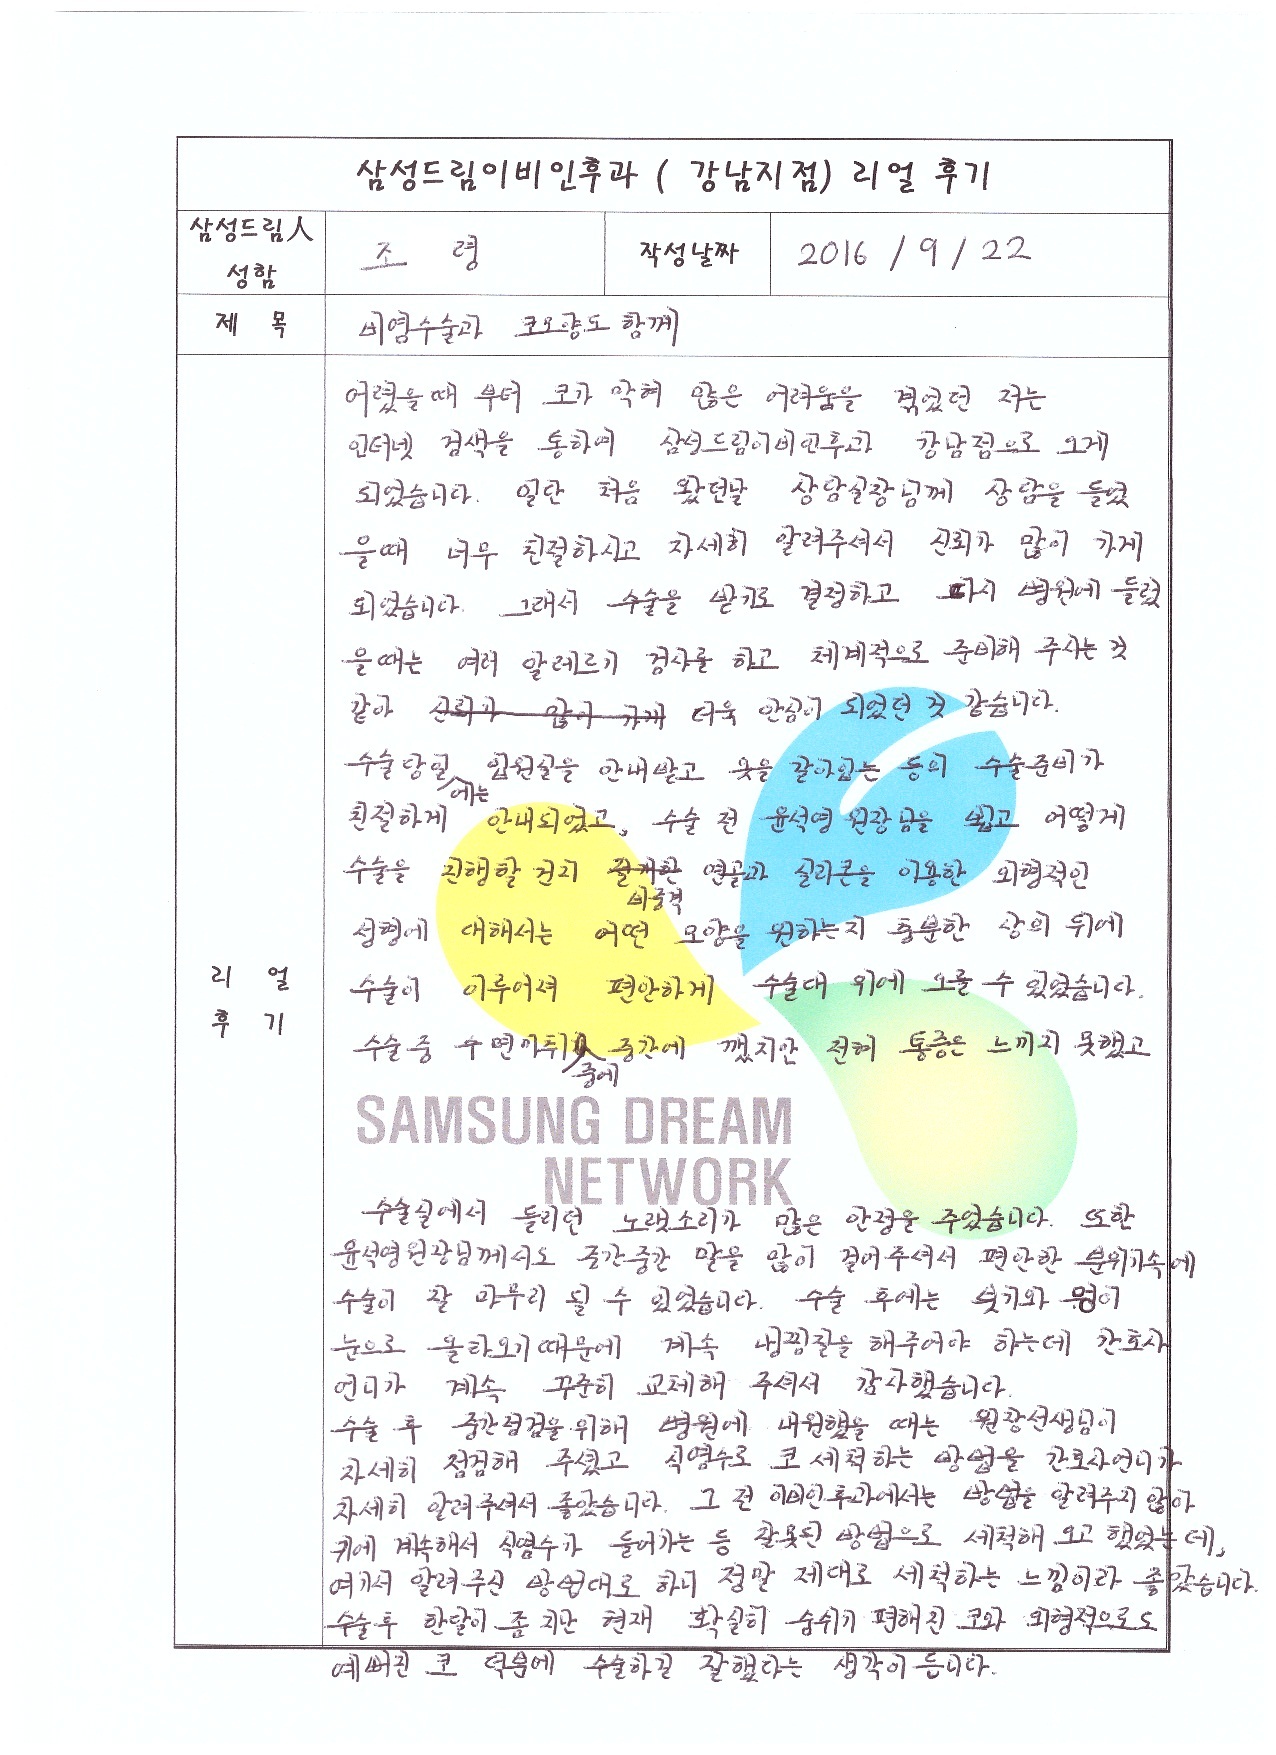 삼성드림이비인후과 ( 강남지점) 리얼 후기
삼성드림人
성함
조 령
작성날짜
2016 / 9 / 22
제 목
비염수술과 코모양도 함께
리 얼
후 기
어렸을때 부터 코가 막혀 많은 어려움을 겪었던 저는
인터넷 검색을 통하여 삼성드림이비인후과 강남점으로 오게
되었습니다. 일단 처음 왔던날 상담실장님께 상담을 들었
을때 너무 친절하시고 자세히 알려주셔서 신뢰가 많이 가게
되었습니다. 그래서 수술을 받기로 결정하고 다시 병원에 들렀
을때는 여러 알레르기 검사를 하고 체계적으로 준비해 주시는 것
같아 신뢰가 많이 가게 더욱 안심이 되었던 것 같습니다.
수술당일에는 입원실을 안내받고 옷을 갈아입는 등의 수술준비가
친절하게 안내되었고, 수술 전 윤석영 원장님을 뵙고 어떻게
수술을 진행할 건지 절개한 비중격 연골과 실리콘을 이용한 외형적인
성형에 대해서는 어떤 모양을 원하는지 충분한 상의 뒤에
수술이 이루어져 편안하게 수술대 위에 오를 수 있었습니다.
수술 중 수면마취 중에 중간에 깼지만 전혀 통증은 느끼지 못했고
SAMSUNG DREAM
NETWORK
수술실에서 들리던 노랫소리가 많은 안정을 주었습니다. 또한
윤석영원장님께서도 중간중간 말을 많이 걸어주셔서 편안한 분위기속에
수술이 잘 마무리 될 수 있었습니다. 수술 후에는 붓기와 멍이
눈으로 올라오기때문에 계속 냉찜질을 해주어야 하는데 간호사
언니가 계속 꾸준히 교체해 주셔서 감사했습니다.
수술 후 중간점검을 위해 병원에 내원했을 때는 원장선생님이
자세히 점검해 주셨고 식염수로 코 세척하는 방법을 간호사언니가
자세히 알려주셔서 좋았습니다. 그 전 이비인후과에서는 방법을 알려주지 않아
귀에 계속해서 식염수가 들어가는 등 잘못된 방법으로 세척해 오고 했었는데,
여기서 알려주신 방법대로 하니 정말 제대로 세척하는 느낌이라 좋았습니다.
수술후 한달이 좀 지난 현재 확실히 숨쉬기 편해진 코와 외형적으로도
예뻐진 코 덕분에 수술하길 잘했다는 생각이 듭니다.